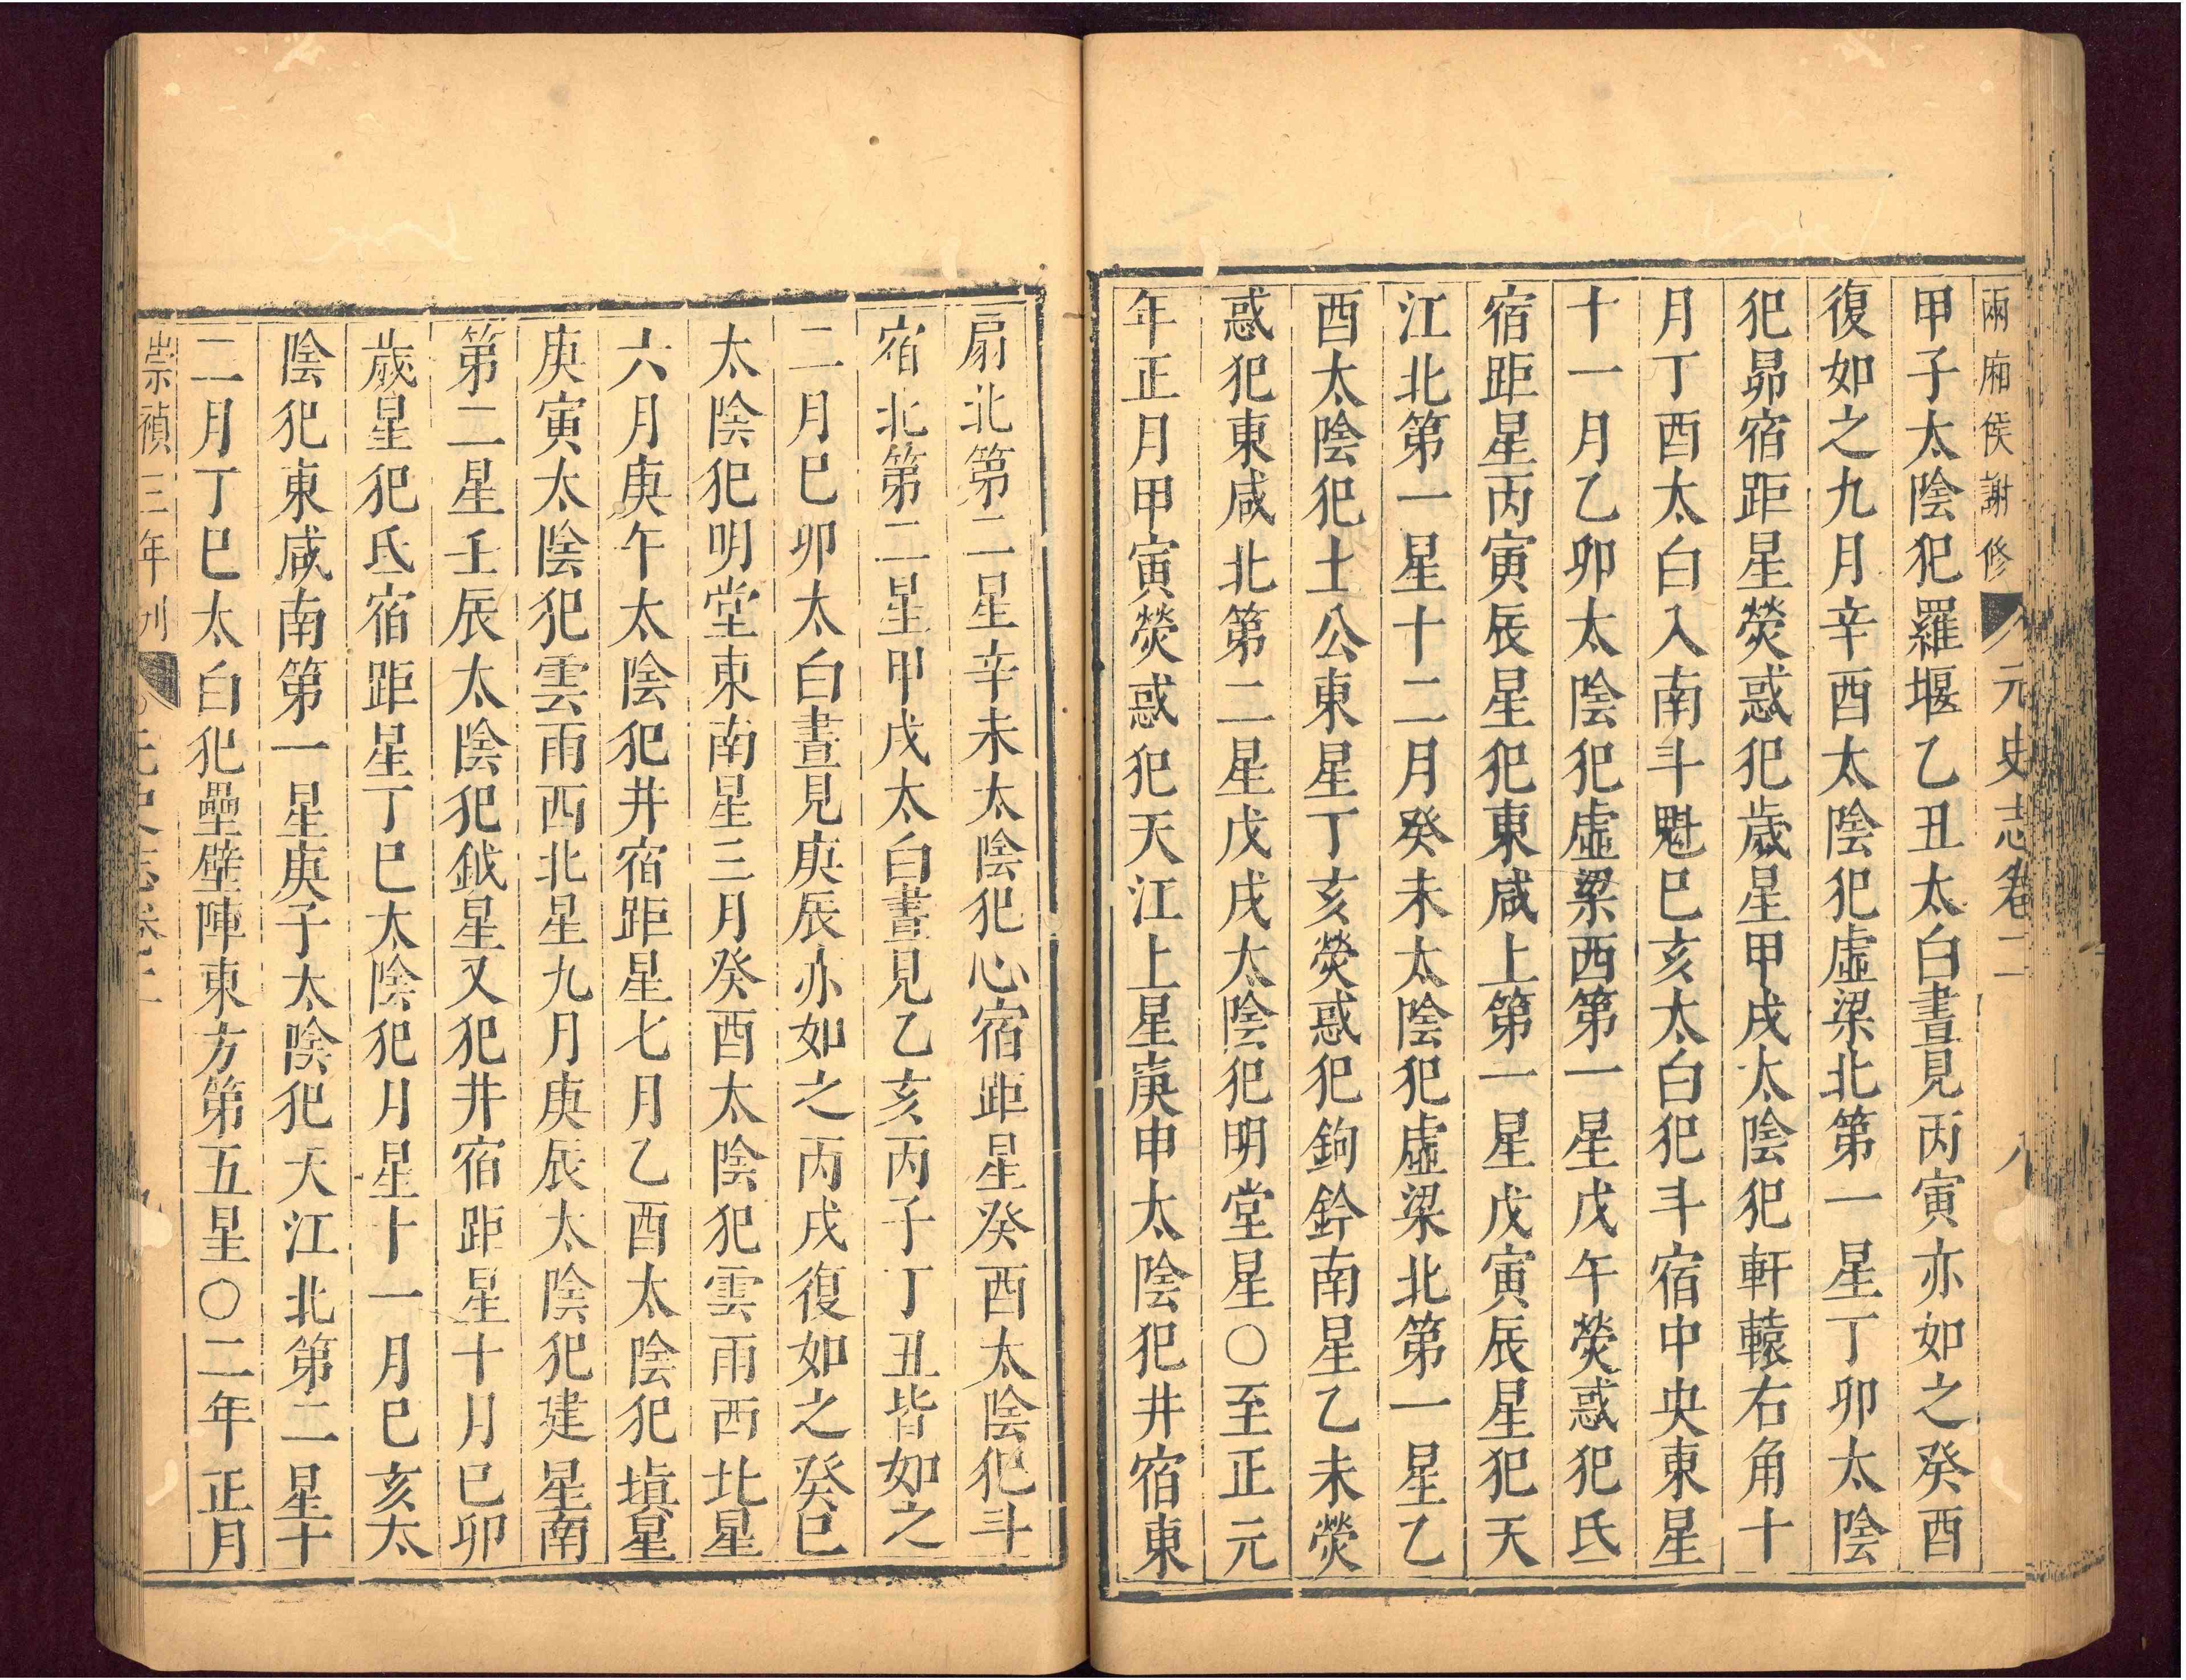 兩廂侯謝修 元史志卷二 八
甲子太陰犯羅堰乙丑太白晝見丙寅亦如之癸酉
復如之九月辛酉太陰犯虛梁北第一星丁卯太陰
犯昴宿距星熒惑犯歲星甲戌太陰犯軒轅右角十
月丁酉太白入南斗魁巳亥太白犯斗宿中央東星
十一月乙卯太陰犯虛梁西第一星戊午熒惑犯氐
宿距星丙寅辰星犯東咸上第一星戊寅辰星犯天
江北第一星十二月癸未太陰犯虛梁北第一星乙
酉太陰犯土公東星丁亥熒惑犯鉤鈐南星乙未熒
惑犯東咸北第二星戊戌太陰犯明堂星〇至正元
年正月甲寅熒惑犯天江上星庚申太陰犯井宿東
扇北第二星辛未太陰犯心宿距星癸酉太陰犯斗
宿北第二星甲戌太白晝見乙亥丙子丁丑皆如之
二月巳卯太白晝見庚辰亦如之丙戌復如之癸巳
太陰犯明堂東南星三月癸酉太陰犯雲雨西北星
六月庚午太陰犯井宿距星七月乙酉太陰犯填星
庚寅太陰犯雲雨西北星九月庚辰太陰犯建星南
第二星壬辰太陰犯鉞星又犯井宿距星十月巳卯
歲星犯氐宿距星丁巳太陰犯月星十一月巳亥太
陰犯東咸南第一星庚子太陰犯天江北第二星十
二月丁巳太白犯壘壁陣東方第五星〇二年正月
崇禎三年刊 元史志卷二 九